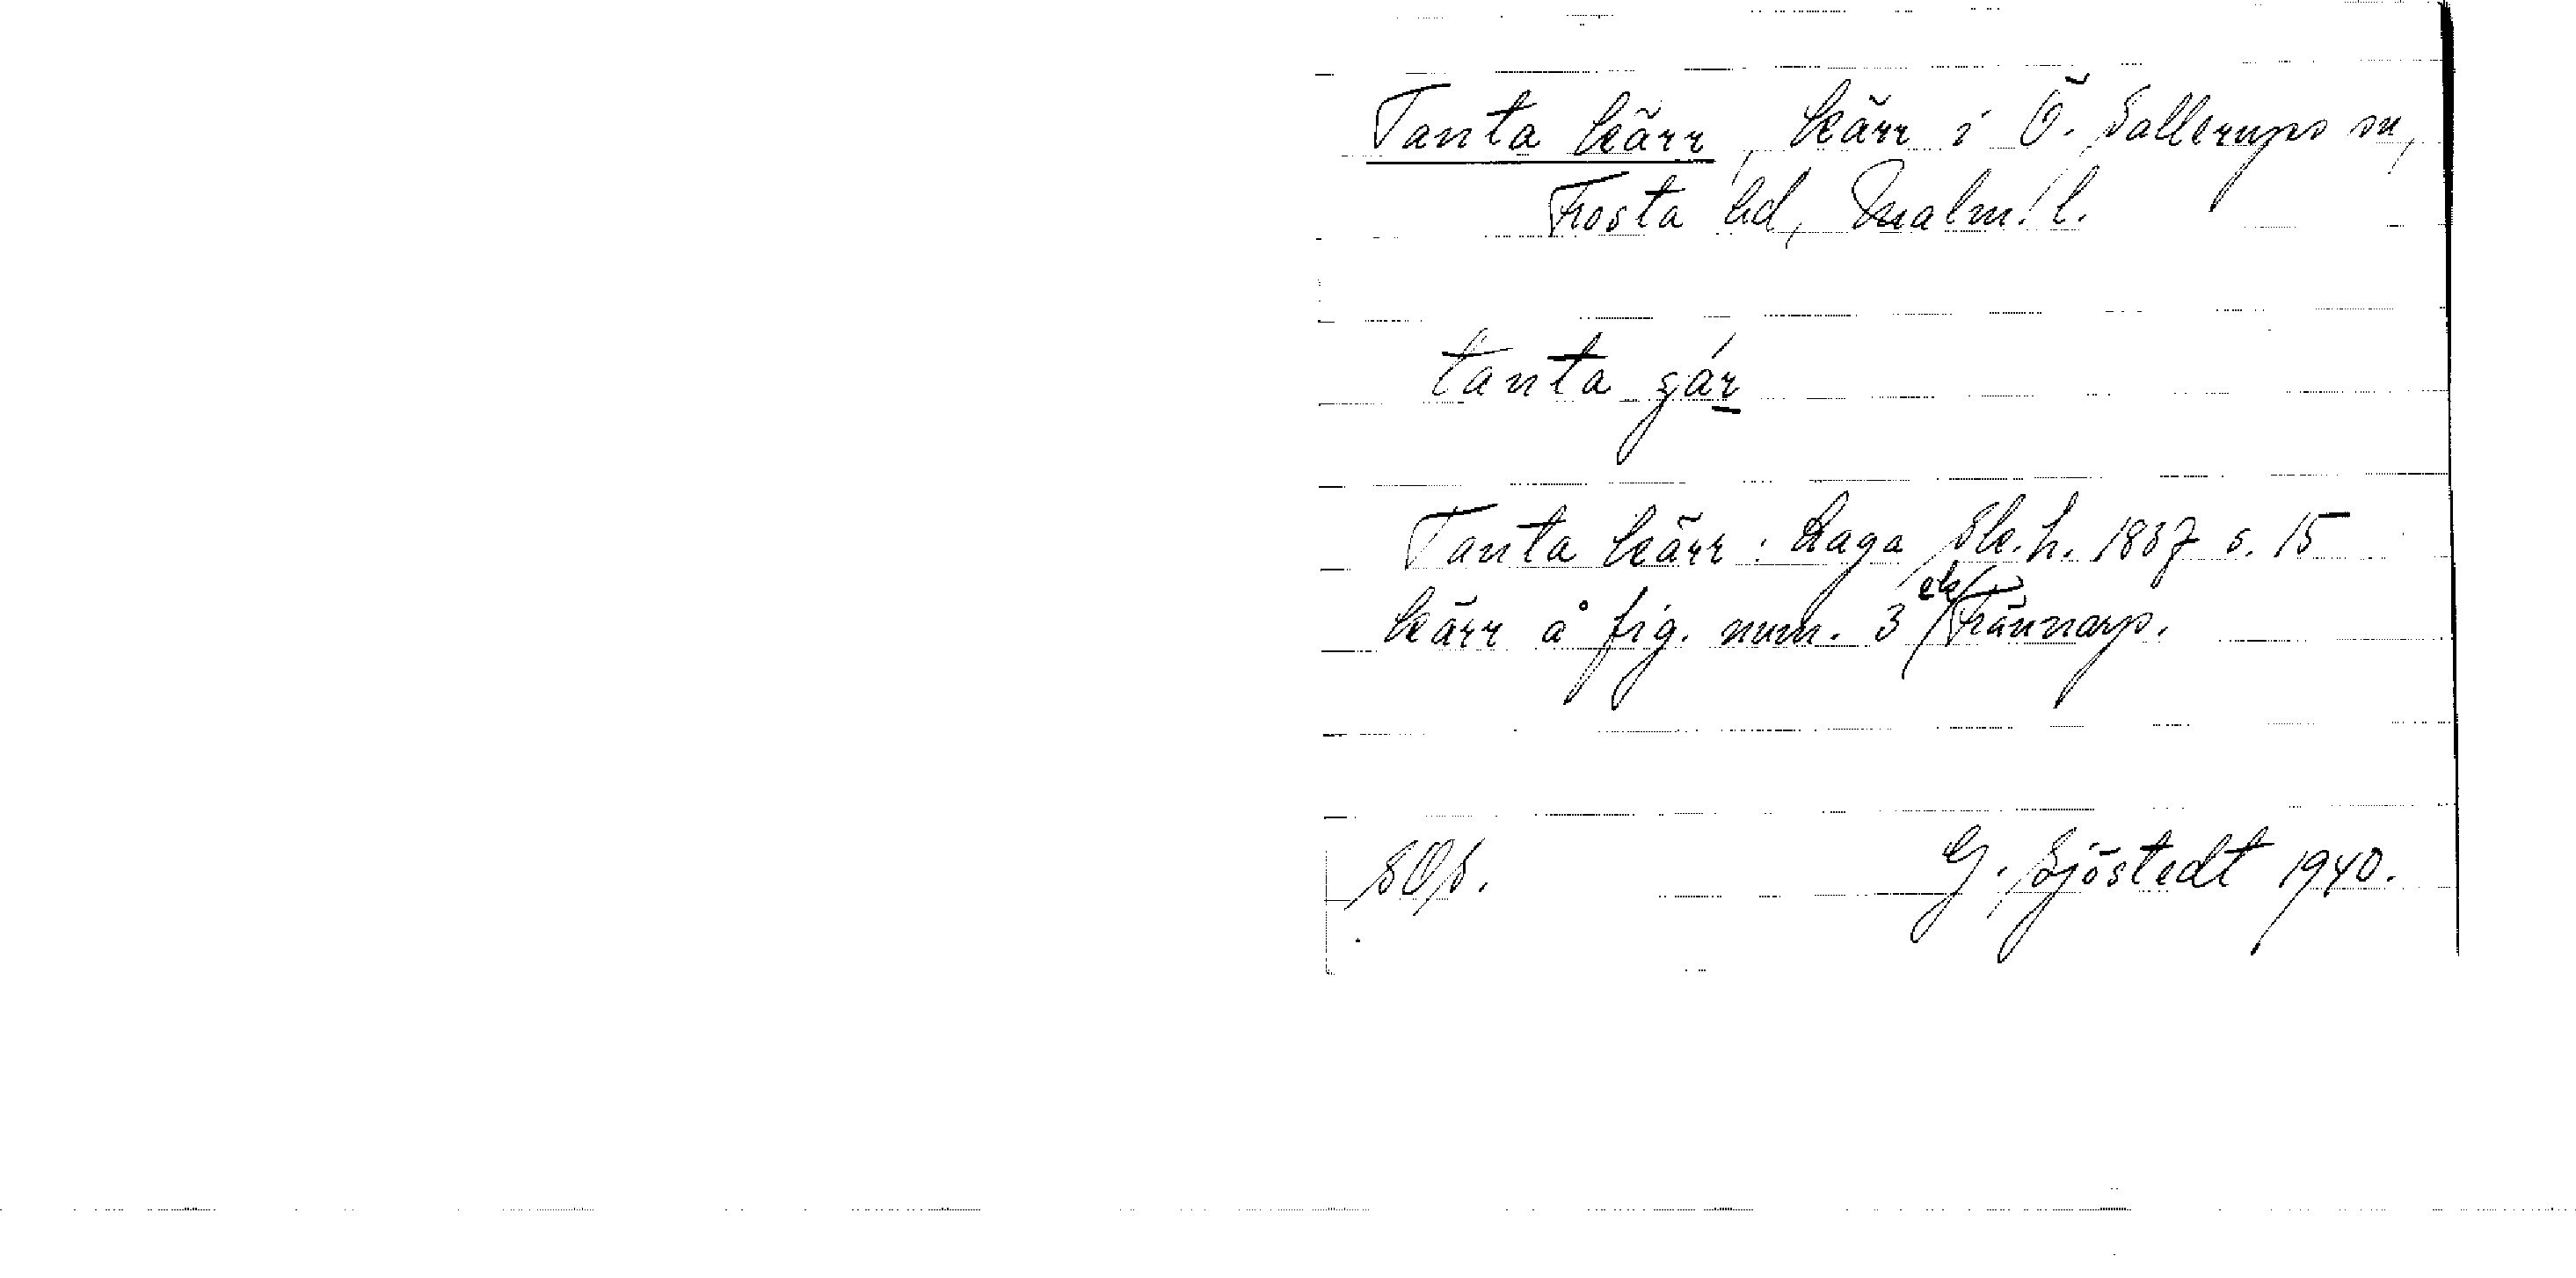 Tanta kärr, kärr i Ö. Sallerups sn,
Frosta hd, Malm. l.
tanta gár
Tanta kärr: Laga Sk. h. 1837 s. 15
kärr å fig. num. 3 ek/Trännarp.
SOS. G. Sjöstedt 1940.